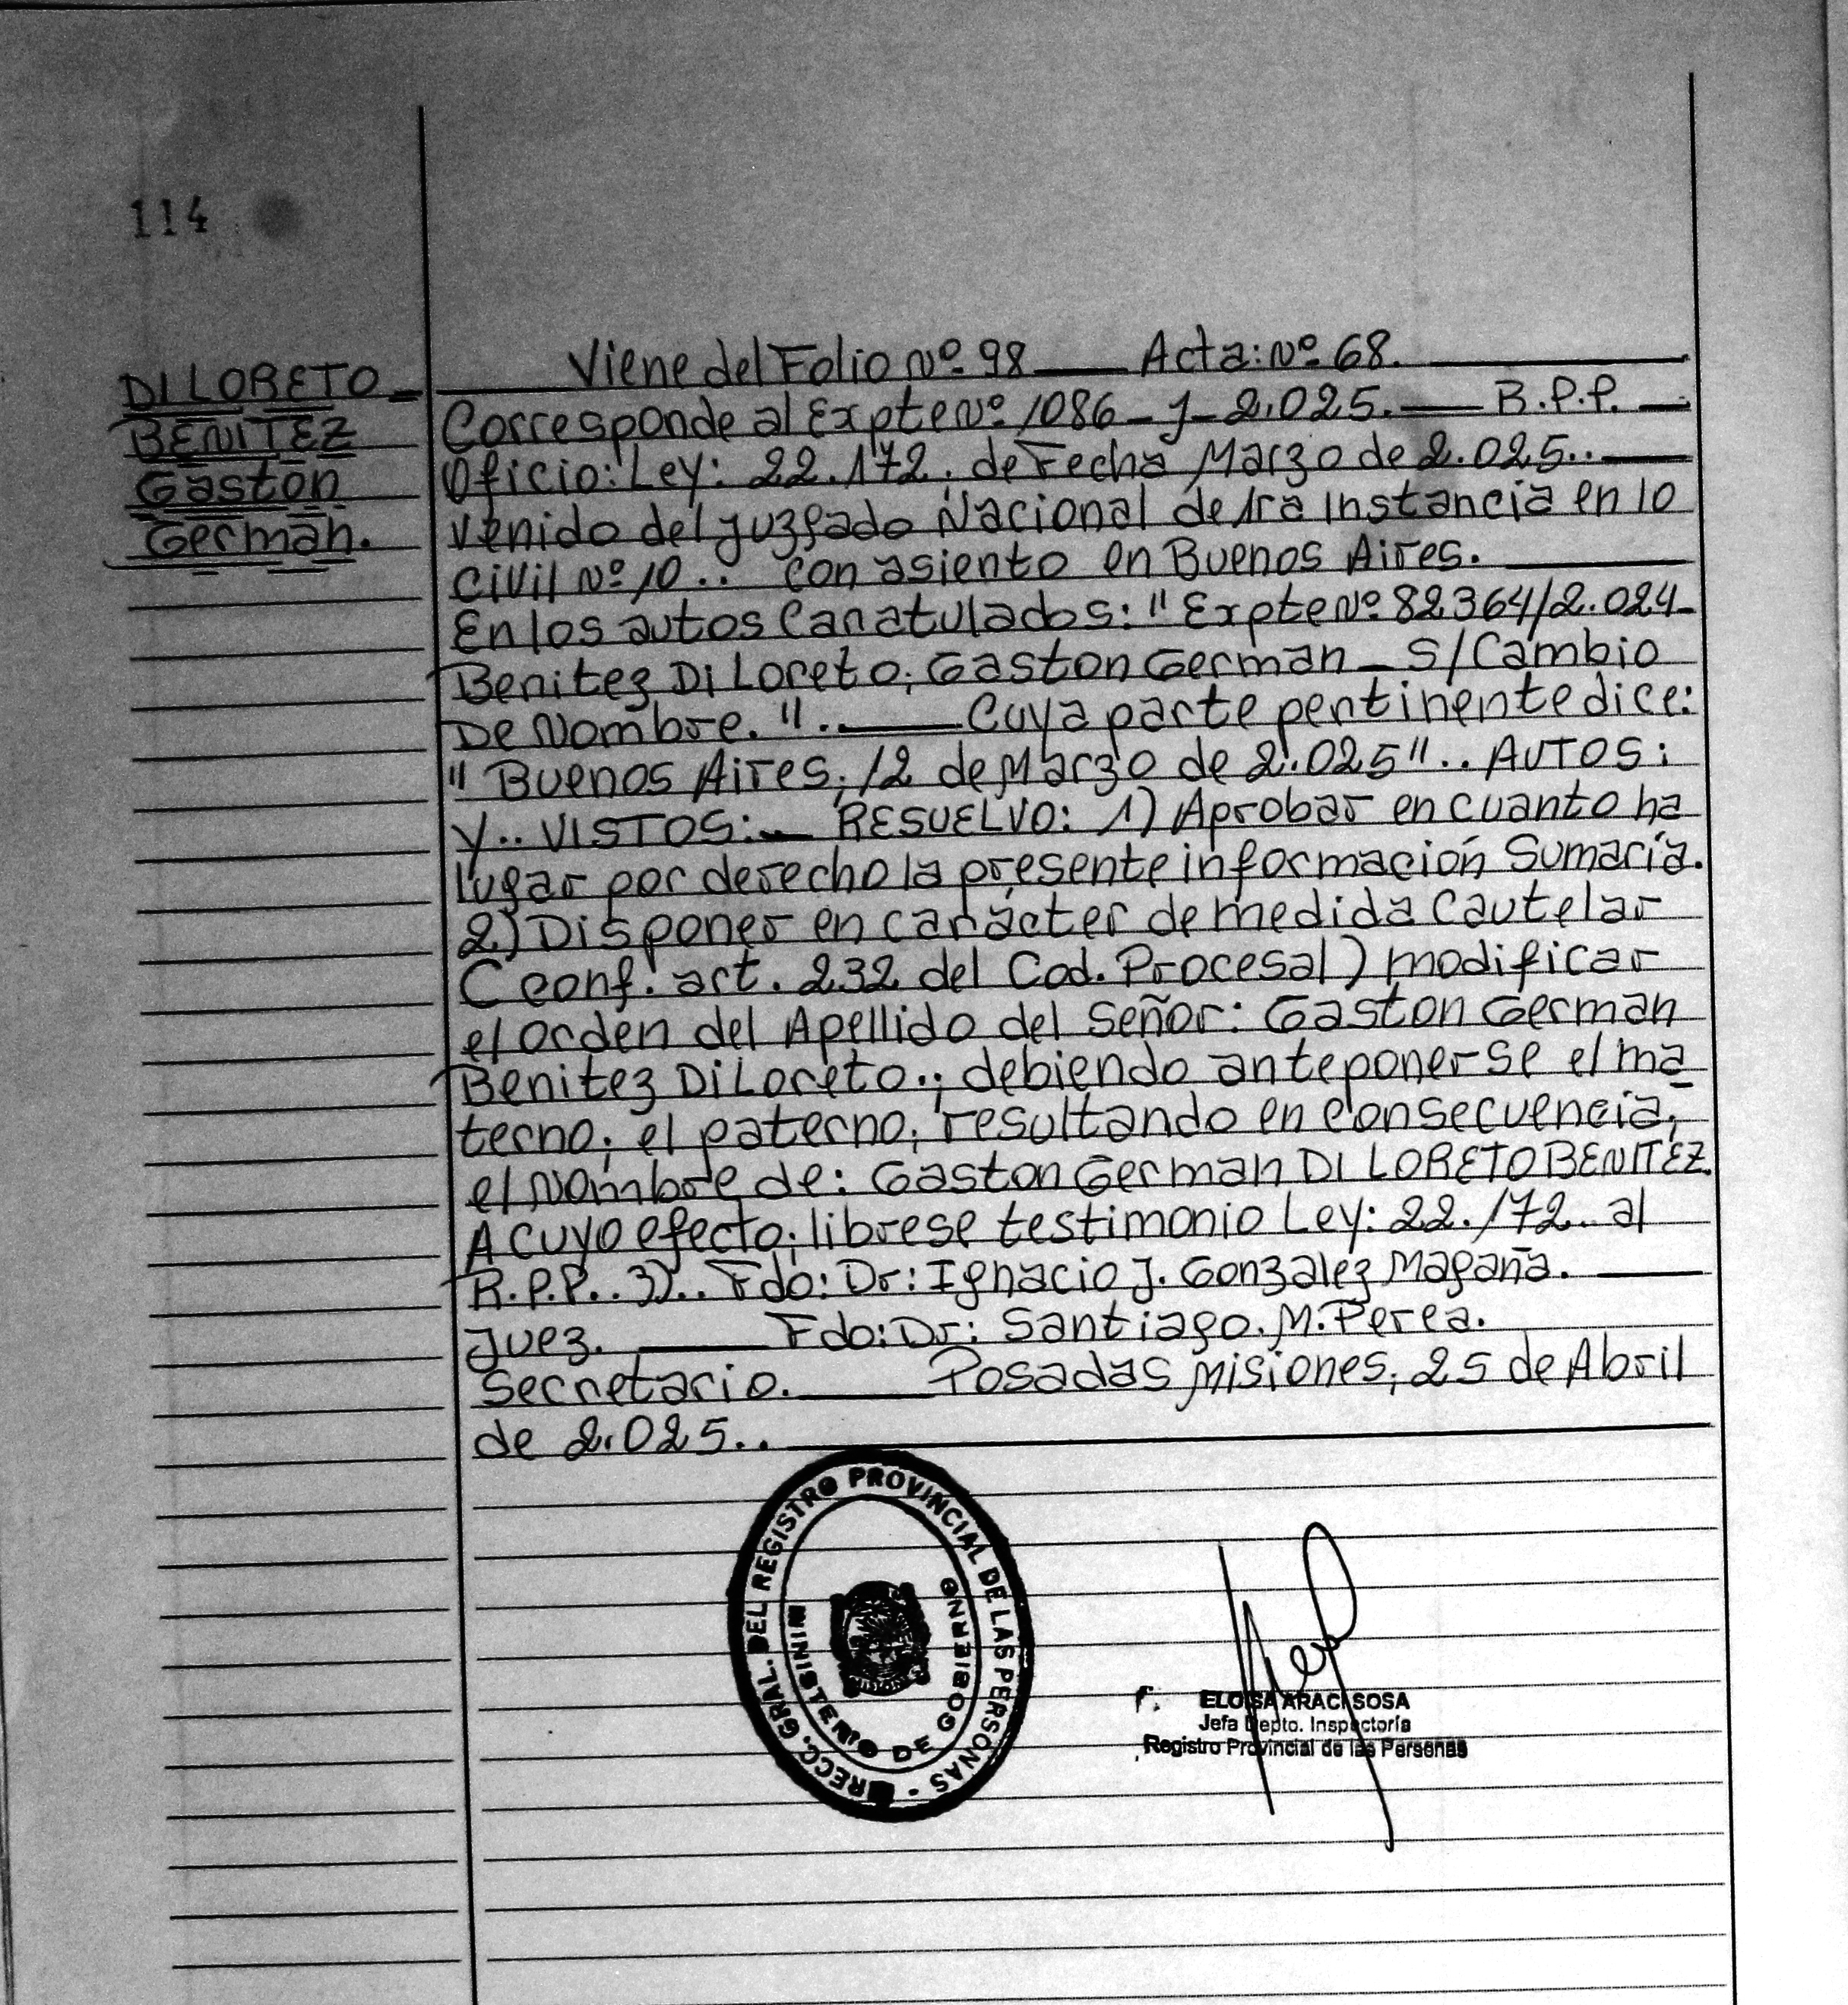 114
DI LORETO
BENITEZ
Gaston
German.
Viene del Folio Nº 98 Acta: Nº 68.
Corresponde al Expte Nº 1086 - J - 2.025. R.P.P.
Oficio: Ley: 22.172. de Fecha Marzo de 2.025..
venido del Juzgado Nacional de 1ra Instancia en lo
Civil Nº 10.. con asiento en Buenos Aires.
En los autos Caratulados: "Expte Nº 82364/2.024
Benitez Di Loreto, Gaston German - S/Cambio
De Nombre.".. Cuya parte pertinente dice:
"Buenos Aires, 12 de Marzo de 2.025".. AUTOS:
Y.. VISTOS: RESUELVO: 1) Aprobar en cuanto ha
lugar por derecho la presente información Sumaria.
2) Disponer en carácter de medida Cautelar
(conf. art. 232 del Cod. Procesal) modificar
el orden del Apellido del Señor: Gaston German
Benitez Di Loreto.; debiendo anteponerse el ma
terno; el paterno, resultando en consecuencia,
el Nombre de: Gaston German DI LORETO BENITEZ.
A cuyo efecto, librese testimonio Ley: 22.172.. al
R.P.P.. 3).. Fdo: Dr: Ignacio J. Gonzalez Magaña.
Juez. Fdo: Dr: Santiago. M. Perea.
Secretario. Posadas Misiones, 25 de Abril
de 2.025..
DIRECC. GRAL. DEL REGISTRO PROVINCIAL DE LAS PERSONAS -
MINISTERIO DE GOBIERNO
F. ELOISA ARACI SOSA
Jefa Depto. Inspectoría
Registro Provincial de las Personas